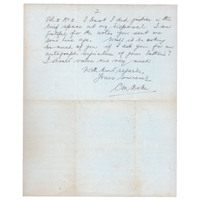 2.
I trust I did justice in the
brief space at my disposal. I am
grateful for the notes you sent me
some time ago. Would it be asking
too much of you if I ask you for an
autograph signature of your father's?
I should value one very much.
With kind regards,
Yours sincerely